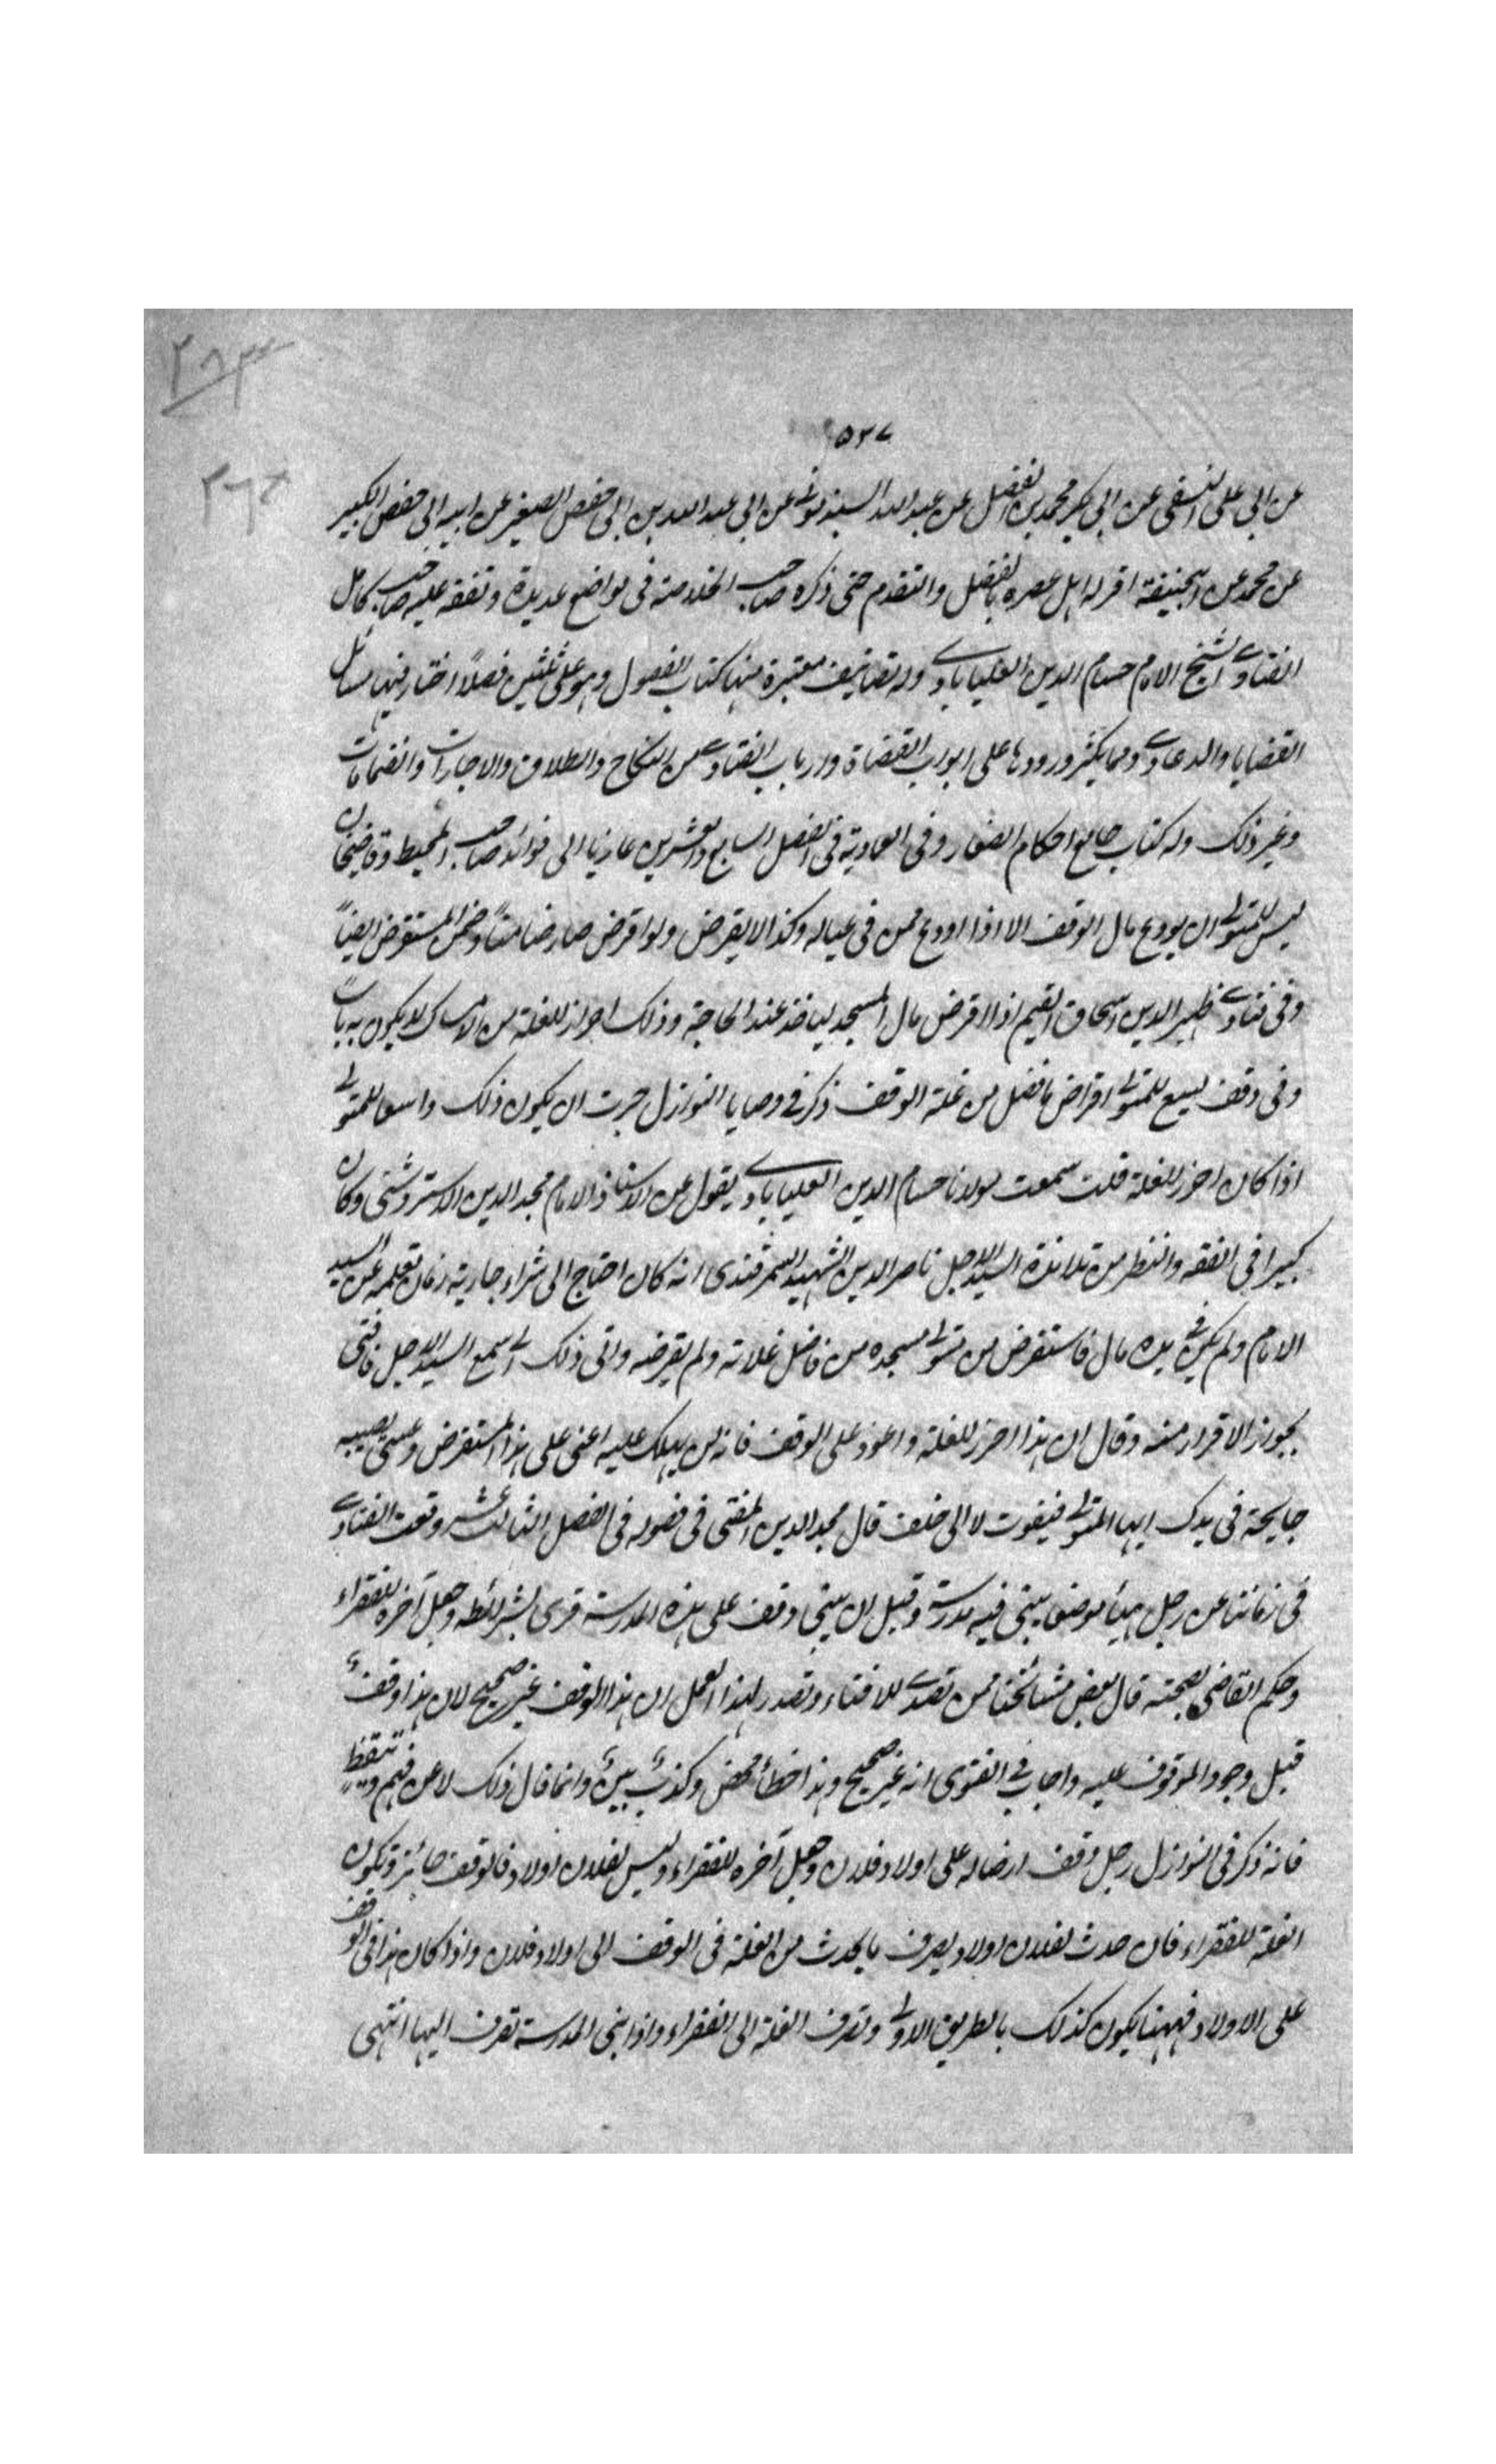 ٢٨٣
٥٢٧
٢٦٥
عن ابى على النسفى عن ابى بكر محمد بن الفضل عن عبد الله السبذمونى عن ابى عبد الله بن ابى حفص الصغير عن ابيه ابى حفص الكبير
عن محمد عن ابيحنيفة اقر له اهل عصره بالفضل والتقدم حتى ذكره صاحب الخلاصة فى مواضع عديدة وتفقه عليه صاحب كامل
الفتاوى الشيخ الامام حسام الدين العليابادى وله تصانيف معتبرة منها كتاب الفصول وهو على ثلثين فصلاً اختار فيها مسائل
القضايا والدعاوى ومما يكثر ورودها على ابواب القضاة وارباب الفتاوى من النكاح والطلاق والاجارات والضمانات
وغير ذلك وله كتاب جامع احكام الصغار وفى العمادية فى الفصل السابع والعشرين عازيا الى فوائد صاحب المحيط وقاضيخان
ليس للمتولى ان يودع مال الوقف الا اذا اودع ممن فى عياله وكذا لا يقرض ولو اقرض صار ضامناً وضمن المستقرض ايضاً
وفى فتاوى ظهير الدين اسحاق القيم اذا اقرض مال المسجد لياخذ عند الحاجة وذلك احرز للغلة من الامساك لا يكون به باساً
وفى وقف يسع للمتولى اقراض ما فضل من غلة الوقف ذكر فى وصايا النوازل جرت ان يكون ذلك واسعا للمتولى
اذا كان احرز للغلة قلت سمعت مولانا حسام الدين العليابادى يقول عن الاستاذ الامام مجد الدين الاستروشنى وكان
كبيرا فى الفقه والنظر من تلامذة السيد الاجل ناصر الدين الشهيد السمرقندى انه كان احتاج الى شراء جارية زمان تعلمه عن السيد
الامام ولم يكن فى يده مال فاستقرض من متولى مسجده من فاضل غلاته ولم يقرضه واتى ذلك الى سمع السيد الاجل فافتى
بجواز الاقرار منه وقال ان هذا احرز للغلة واعود على الوقف فانه لن يهلك عليه اعنى على هذا المستقرض وعسى تصيبه
جايحة فى يدك ايها المتولى فيفوت لا الى خلف قال مجد الدين المفتى فى فصوله فى الفصل الثالث عشر وقعت الفتاوى
فى زماننا عن رجل هيأ موضعا يبنى فيه مدرسة وقبل ان يبنى وقف على هذه المدرسة قرى بشرائطه وجعل آخره للفقراء
وحكم القاضى بصحته قال بعض مشائخنا ممن تصدى للافتاء وتصدر لهذا العمل ان هذا الوقف غير صحيح لان هذا وقفٌ
قبل وجود الموقوف عليه واجاب فى الفتوى انه غير صحيح وهذا خطأ محض وكذبٌ بينٌ وانما قال ذلك لا عن فهم وتيقظٍ
فانه ذكر فى النوازل رجل وقف ارضا له على اولاد فلان وجعل آخره للفقراء وليس لفلان اولاد فالوقف جائز وتكون
الغلة للفقراء فان حدث لفلان اولاد يصرف ما يحدث من الغلة فى الوقف الى اولاد فلان واذا كان هذا فى الوقف
على الاولاد فههنا يكون كذلك بالطريق الاولى وتصرف الغلة الى الفقراء واذا بنى المدرسة تصرف اليها انتهى